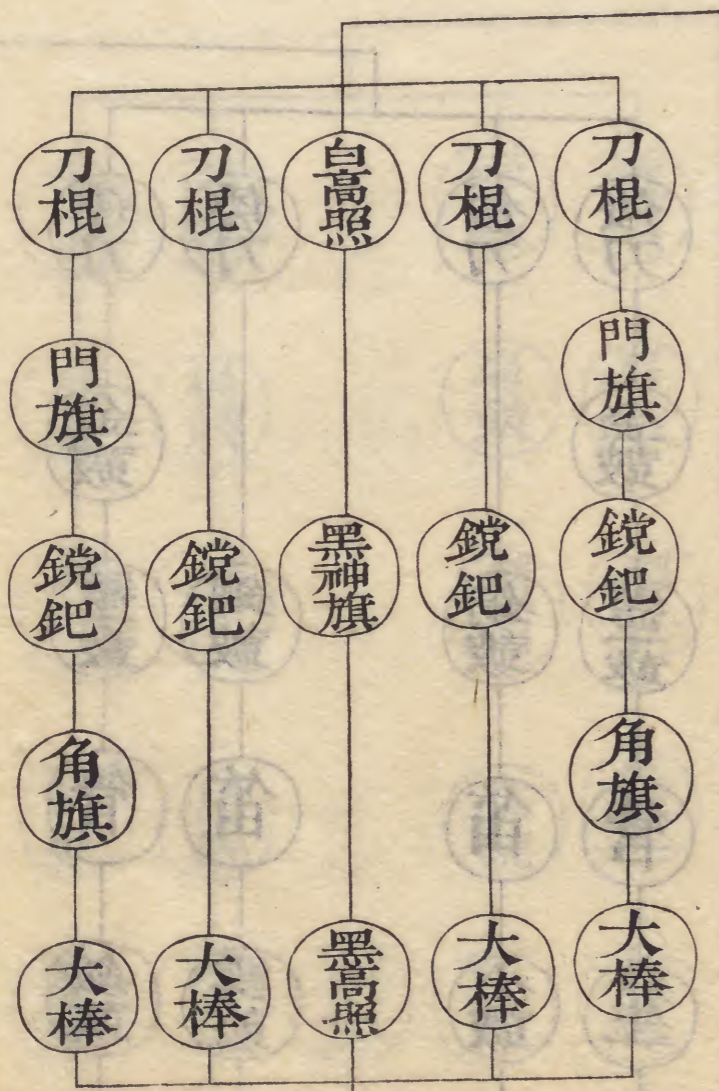 刀棍
門旗
鎲鈀
角旗
大棒
刀棍
鎲鈀
大棒
白高照
黑神旗
黑高照
刀棍
鎲鈀
大棒
刀棍
門旗
鎲鈀
角旗
大棒